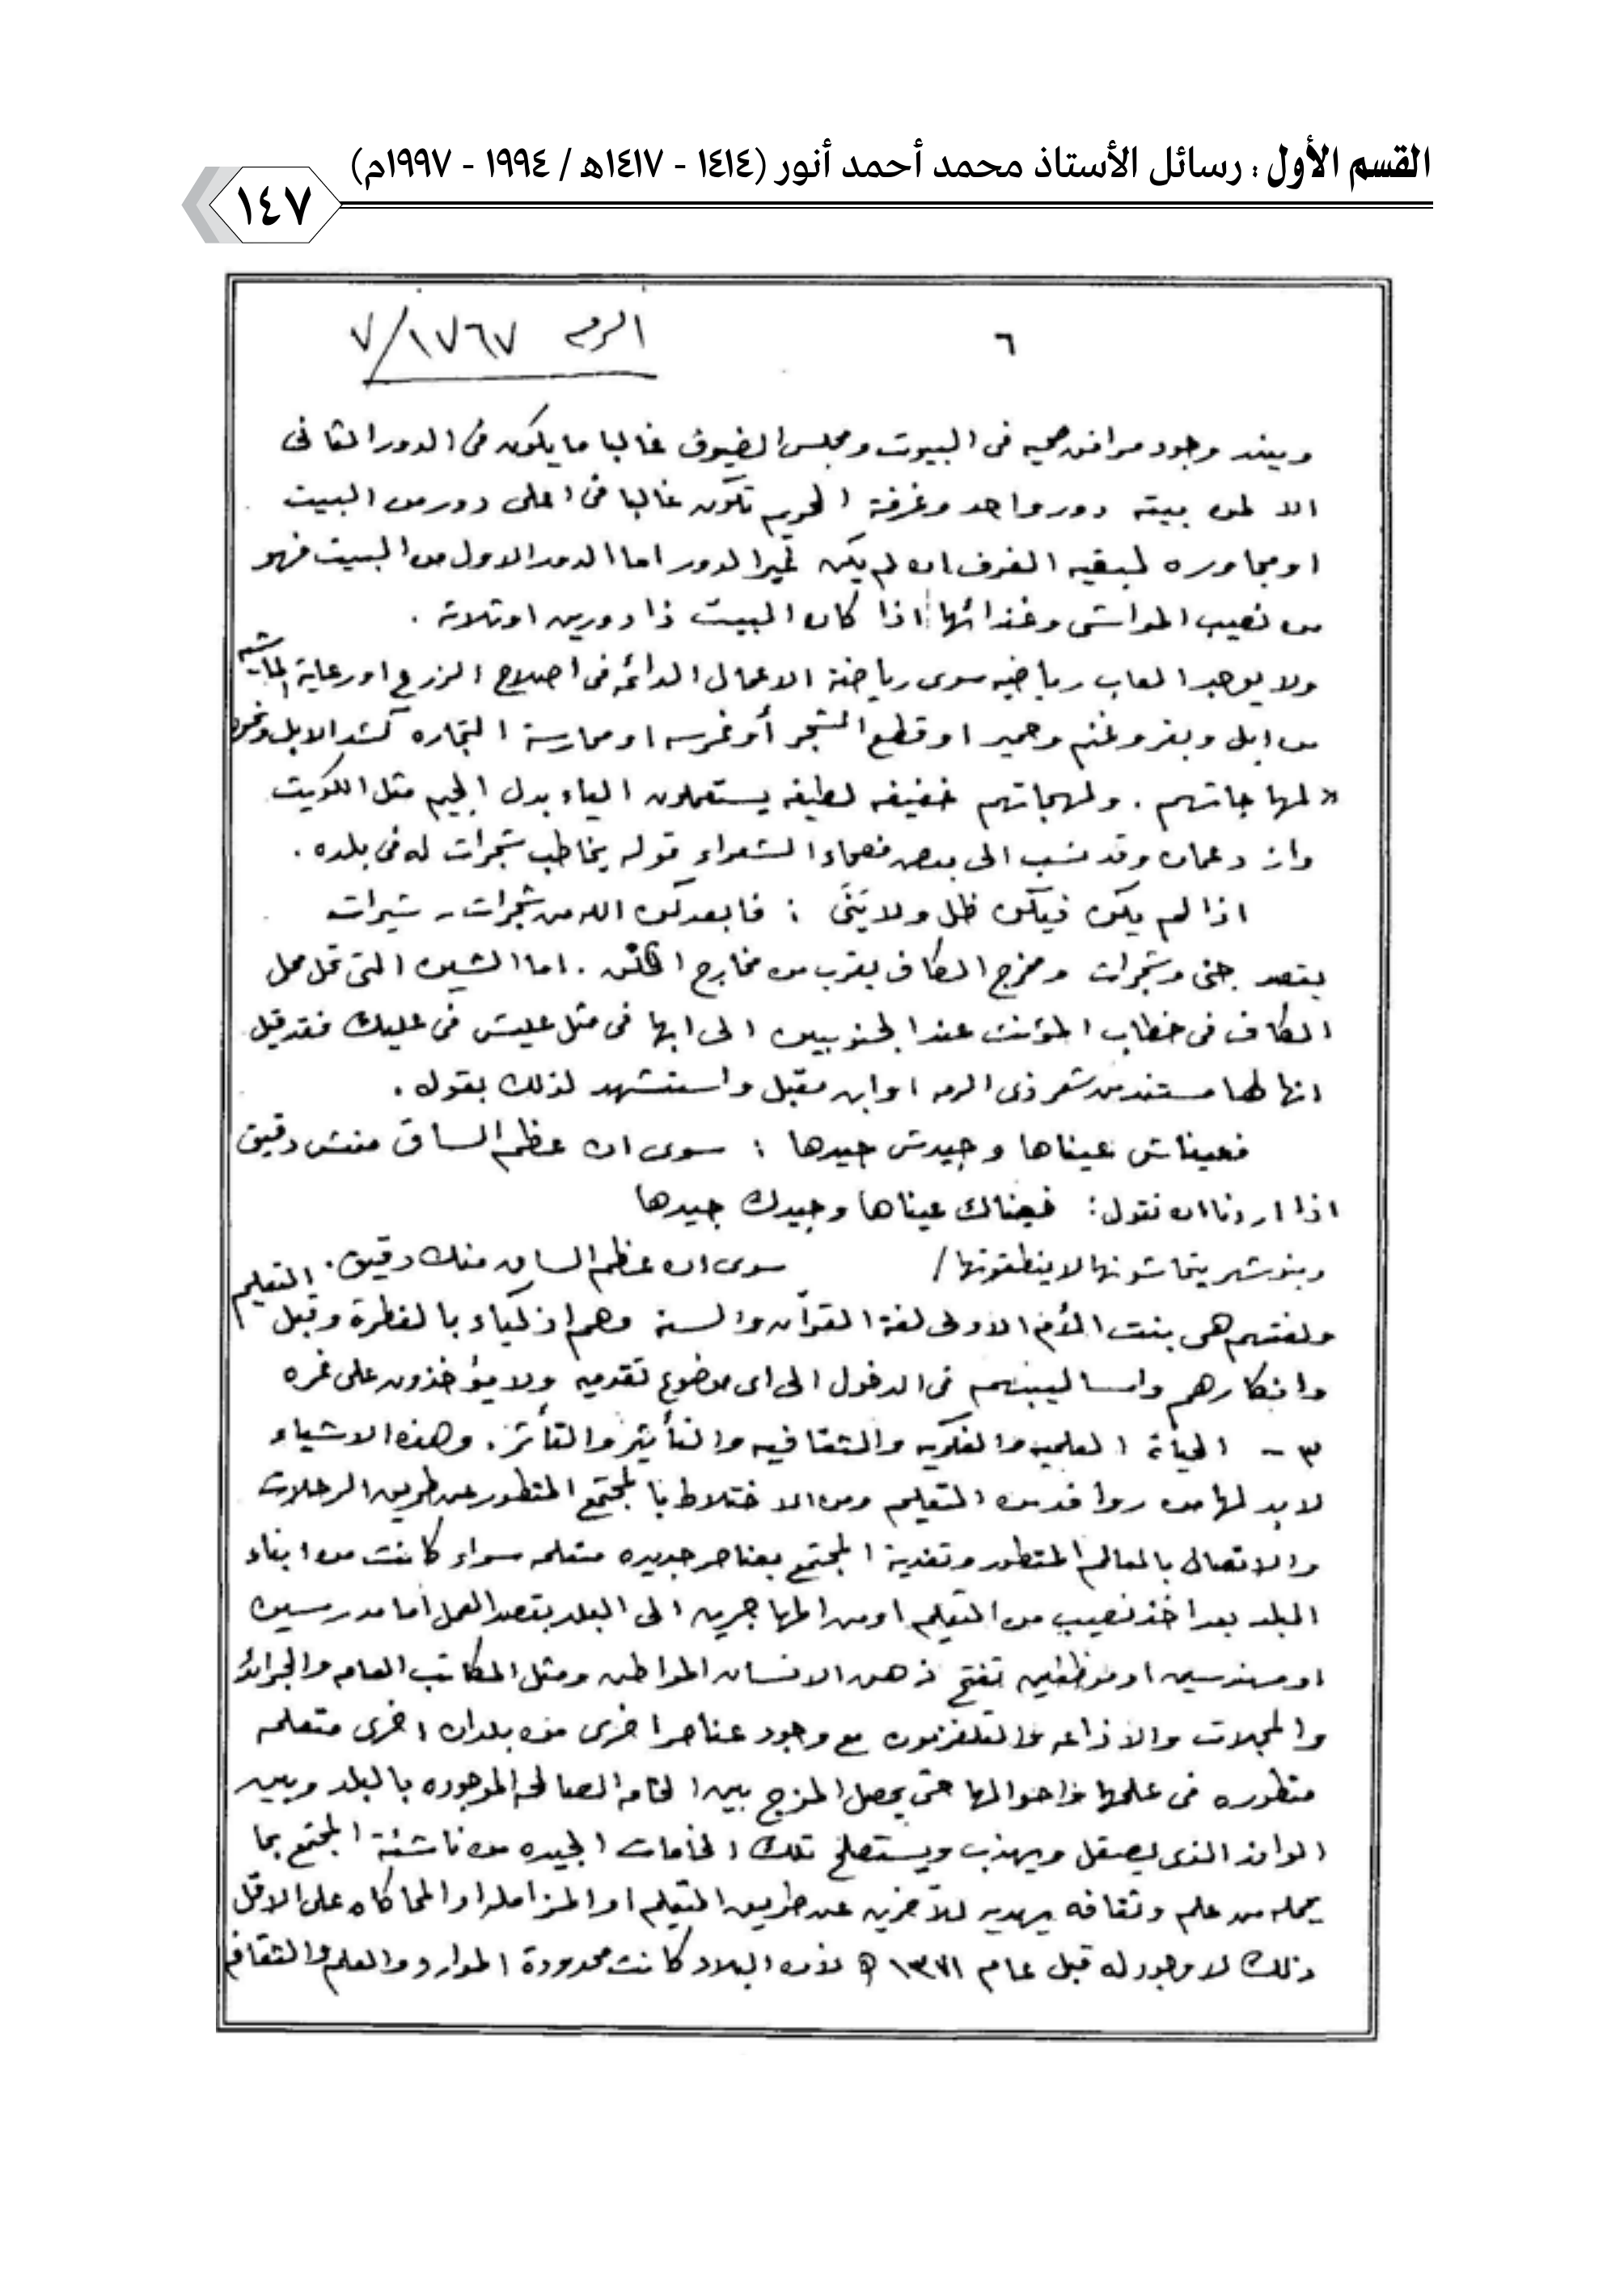 القسم الأول : رسائل الأستاذ محمد أحمد أنور (١٤١٤ - ١٤١٧هـ / ١٩٩٤ - ١٩٩٧م)
١٤٧
٦ الرقم ٧/١٧٦٧
ويندر وجود مرافق صحيه فى البيوت ومجلس الضيوف غالبا ما يكون فى الدور الثانى
الا لمن بيته دور واحد وغرفة الحريم تكون غالبا فى اعلى دور من البيت
او مجاوره لبقيه الغرف ان لم يكن غير الدور اما الدور الاول من البيت فهو
من نصيب المواشى وغذائها اذا كان البيت ذا دورين او ثلاثة .
ولا يوجد العاب رياضيه سوى رياضة الاعمال الدائمه فى اصلاح الزرع او رعاية الماشيه
من ابل وبقر وغنم وحمير او قطع الشجر أو غرسه او ممارسة التجاره كشد الابل ونحوها
لهاجاتهم . ولهجاتهم خفيفه لطيفه يستعملون الياء بدل الجيم مثل الكويت
وازد عمان وقد نسب الى بعض فصحاء الشعراء قوله يخاطب شجرات له فى بلده .
اذا لم يكن فيكن ظل ولا يَنَى : فابعدكن الله من شجرات - شيرات
يقصد جنى وشجرات ومخرج الكاف يقرب من مخارج . اما الشين التى تحل محل
الكاف فى خطاب المؤنث عند الجنوبيين الى ابها فى مثل عليش فى عليك فقد قيل
انها لها مستند من شعر ذى الرمه او ابن مقبل واستشهد لذلك بقوله .
فعيناش عيناها وجيدش جيدها : سوى ان عظم الساق منش دقيق
اذا اردنا ان نقول : فعيناك عيناها وجيدك جيدها
وبنو شهر يتحاشونها لا ينطقونها / سوى ان عظم الساق منك دقيق .
ولغتهم هى بنت الأم الاولى لغة القرآن والسنة وهم اذكياء بالفطرة وقبل التعليم
وافكارهم واساليبهم فى الدخول الى اى موضوع تقدميه ولا يؤخذون على غره
٣ - الحياة العلميه والفكريه والثقافيه والتأثير والتأثر . وهذه الاشياء
لا بد لها من روافد من التعليم ومن الاختلاط بالمجتمع المتطور عن طريق الرحلات
والاتصال بالعالم المتطور وتغذية المجتمع بعناصر جديده متعلمه سواء كانت من ابناء
البلد بعد اخذ نصيب من التعليم او من المهاجرين الى البلد بقصد العمل اما مدرسين
او مهندسين او موظفين تفتح ذهن الانسان المواطن ومثل المكاتب العامه والجرائد
والمجلات والاذاعه والتلفزيون مع وجود عناصر اخرى من بلدان اخرى متعلمه
متطوره فى علمها واحوالها حتى يحصل المزج بين الخامه الصالحه الموجوده بالبلد وبين
الوافد الذى يصقل ويهذب ويستصلح تلك الخامات الجيده من ناشئة المجتمع بما
يحمله من علم وثقافه يهديه للآخرين عن طريق التعليم او المزامله او المحاكاه على الاقل
ذلك لا وجود له قبل عام ١٣٧١ هـ لان البلاد كانت محدودة الموارد والعلم والثقافه